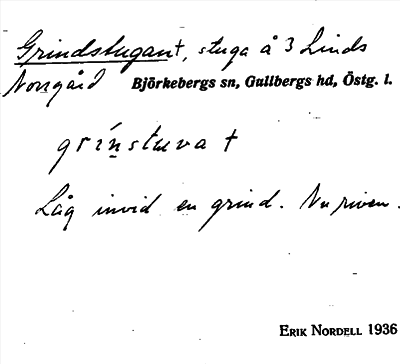 Grindstugan†, stuga å 3 Linds
Norrgård Björkebergs sn, Gullbergs hd, Östg. l.
grínstuva †
Låg invid en grind. Nu riven.
ERIK NORDELL 1936